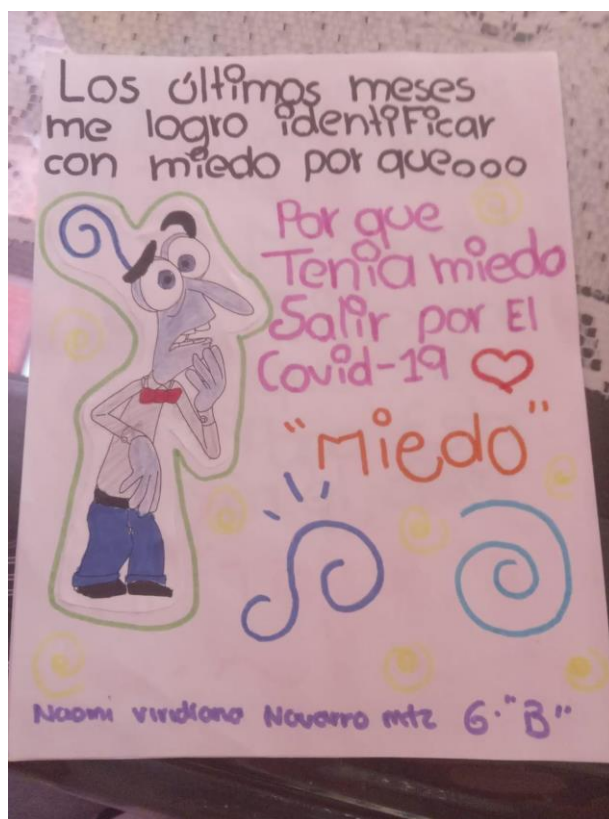 Los últimos meses
me logro identificar
con miedo por que...
Por que
Tenia miedo
Salir por El
Covid-19
"Miedo"
Naomi viridiana Navarro mtz 6·"B"